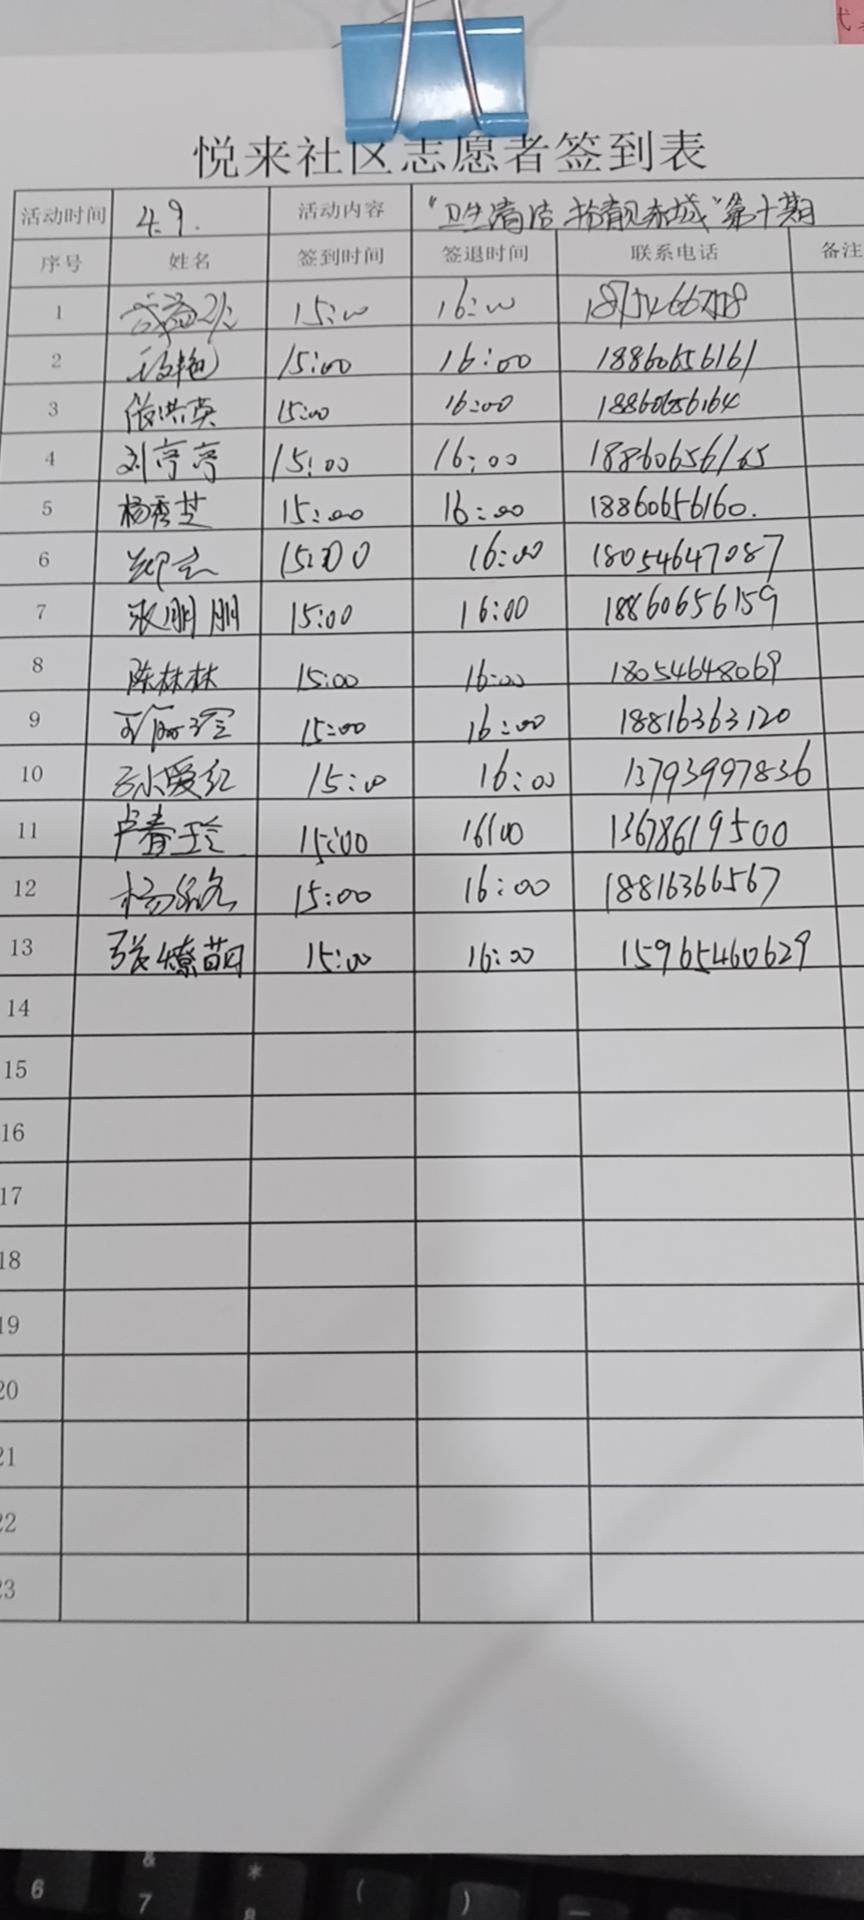 悦来社区志愿者签到表
活动时间 4.9. 活动内容 "卫生清洁 扮靓东城"第十期
序号 姓名 签到时间 签退时间 联系电话 备注
1 15:00 16:00
2 15:00 16:00 18860656161
3 张洪英 15:00 16:00 18860656164
4 刘亭亭 15:00 16:00 18860656165
5 杨秀芝 15:00 16:00 18860656160.
6 15:00 16:00 18054647087
7 张朋朋 15:00 16:00 18860656159
8 陈林林 15:00 16:00 18054648069
9 15:00 16:00 18816363120
10 孙爱红 15:00 16:00 13793997836
11 卢春玲 15:00 16:00 13678619500
12 15:00 16:00 18816366567
13 15:00 16:00 15965460629
14
15
16
17
18
19
20
21
22
23
6 & 7 * 8 ( ) —